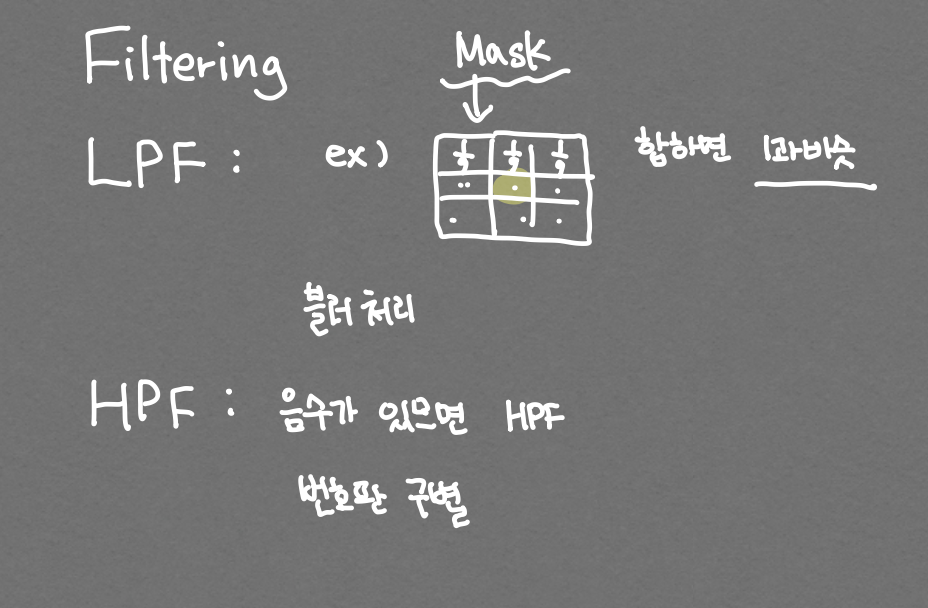 Filtering
Mask
LPF : ex) 1/9 1/9 1/9 합하면 1과비슷
블러 처리
HPF : 음수가 있으면 HPF
번호판 구별